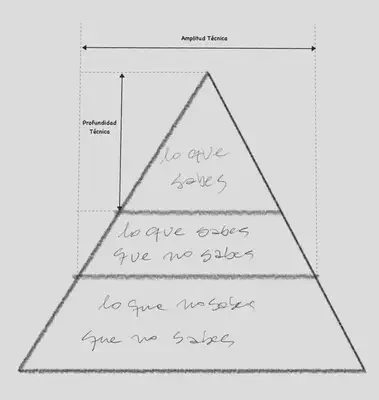 Amplitud Técnica
Profundidad
Técnica
lo que
sabes
lo que sabes
que no sabes
lo que no sabes
que no sabes